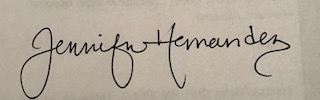 Jennifer Hernandez